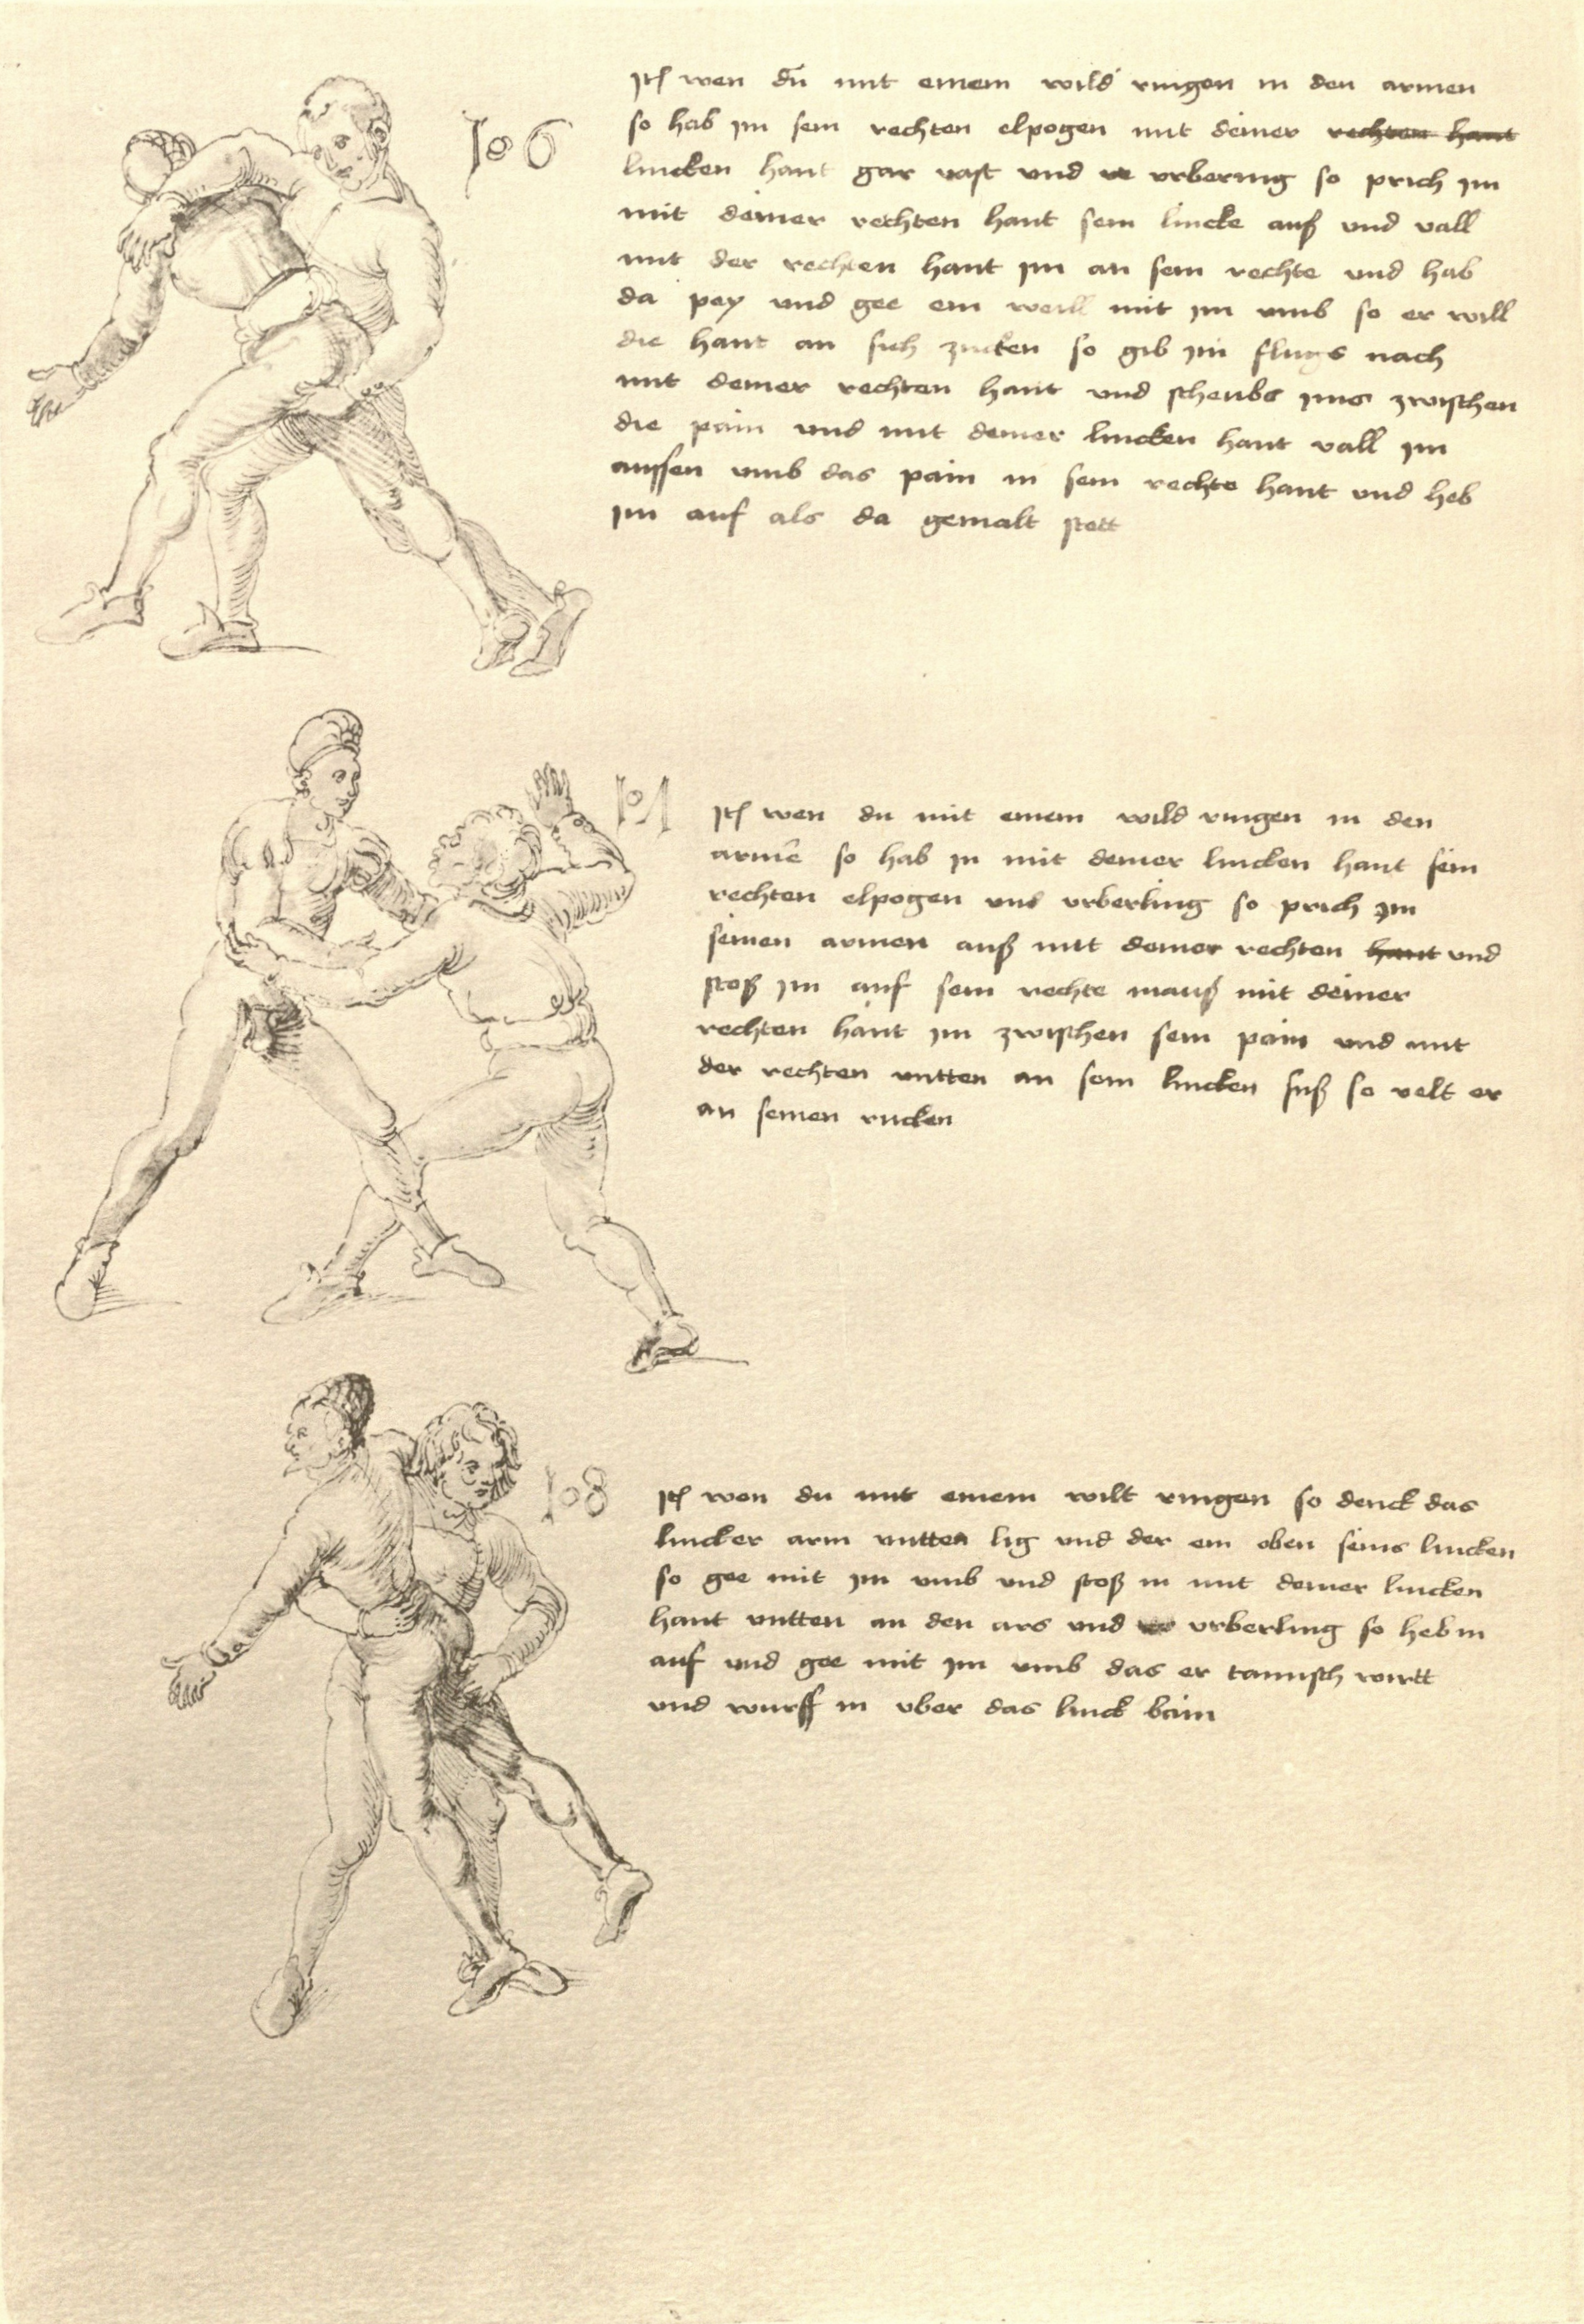 106
Itß wen du mit einem wild ringen in den armen
so hab im sein rechten elpogen mit deiner rechten hant
lincken hant gar vast und urbering so prich im
mit deiner rechten hant sein lincke auß und vall
mit der rechten hant im an sein rechte und hab
da pey und gee ein weill mit im umb so er will
die hant an sich zucken so gib im flugs nach
mit deiner rechten hant und scheubs ims zwischen
die pain und mit deiner lincken hant vall im
aussen umb das pain in sein rechte hant und heb
im auf als da gemalt stett
107
Itß wen du mit einem wild ringen in den
armē so hab in mit deiner lincken hant sein
rechten elpogen und urberling so prich im
seinen armen auß mit deiner rechten hant und
stoß im auf sein rechte mauß mit deiner
rechten hant im zwischen sein pain und mit
der rechten untten an sein lincken fuß so velt er
an seinen rucken
108
Itß wen du mit einem wilt ringen so denck das
lincker arm untten lig und der ein oben seins lincken
so gee mit im umb und stoß in mit deiner lincken
hant untten an den ars und urberling so heb in
auf und gee mit im umb das er tamisch wirtt
und wurff in uber das linck bain